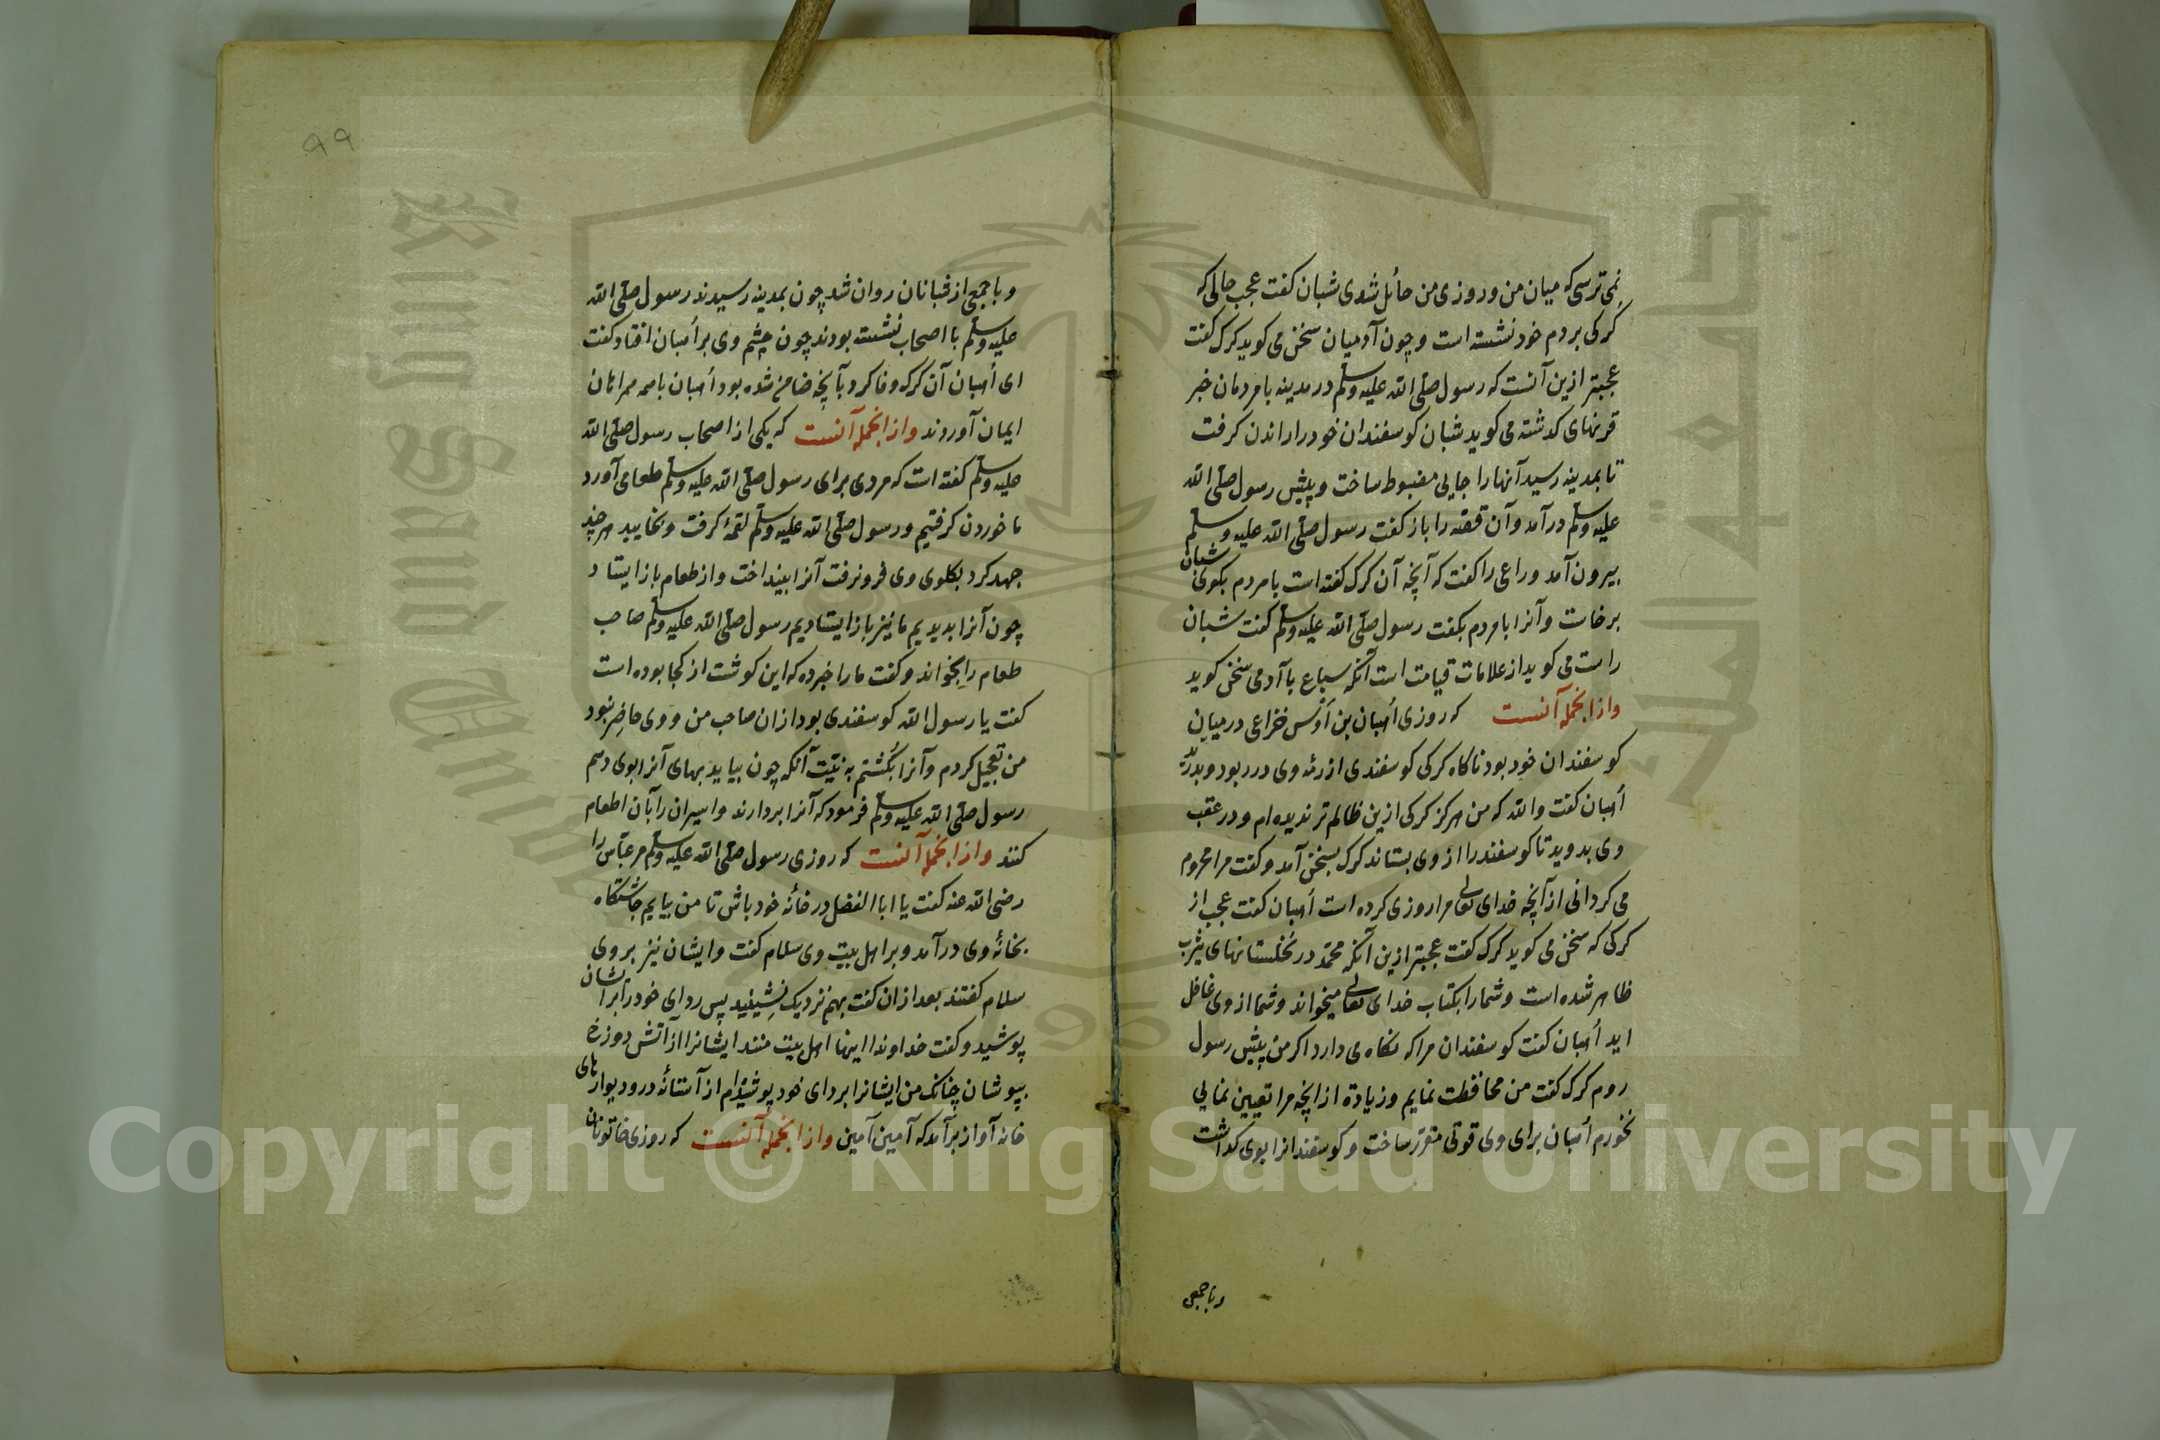 نمی ترسی که میان من و روزی من حائل شدی شبان کفت عجب حالی که
کرکی بر دم خود نشسته است و چون آدمیان سخن می کوید کرک کفت
عجبتر ازین آنست که رسول صلّی الله علیه وسلّم در مدینه با مردمان خبر
قرنهای کذشته می کوید شبان کوسفندان خود را راندن کرفت
تا بمدینه رسید آنها را جایی مضبوط ساخت و پیش رسول صلّی الله
علیه وسلّم درآمد وآن قصّه را باز کفت رسول صلّی الله علیه وسلّم
بیرون آمد و راعی را کفت که آنچه آن کرک کفته است با مردم بکوی شبان
برخاست وآنرا با مردم بکفت رسول صلّی الله علیه وسلّم کفت شبان
راست می کوید از علامات قیامت است آنکه سباع با آدمی سخن کوید
وازانجمله آنست که روزی اُهبان بن اَوْس خزاعی در میان
کوسفندان خود بود ناکاه کرکی کوسفندی از رمهٔ وی در ربود و بدرید
اُهبان کفت والله که من هرکز کرکی ازین ظالم تر ندیده ام و در عقب
وی بدوید تا کوسفند را از وی بستاند کرک بسخن آمد و کفت مرا محروم
می کردانی از آنچه خدای تعالی مرا روزی کرده است اُهبان کفت عجب از
کرکی که سخن می کوید کرک کفت عجبتر ازین آنکه محمّد در نخلستانهای یثرب
ظاهر شده است و شما را بکتاب خدای تعالی میخواند و شما از وی غافل
اید اُهبان کفت کوسفندان مرا که نکاه می دارد اکر من پیش رسول
روم کرک کفت من محافظت نمایم و زیادة از آنچه مرا تعیین نمایی
نخورم اُهبان برای وی قوتی مقرّر ساخت و کوسفندانرا بوی کذاشت
وباجمعی
٩٩
وباجمعی از شبانان روان شد چون بمدینه رسیدند رسول صلّی الله
علیه وسلّم با اصحاب نشسته بودند چون چشم وی بر اُهبان افتاد کفت
ای اُهبان آن کرک وفا کرد بآنچه ضامن شده بود اُهبان با همه همراهان
ایمان آوردند وازانجمله آنست که یکی از اصحاب رسول صلّی الله
علیه وسلّم کفته است که مردی برای رسول صلّی الله علیه وسلّم طعامی آورد
ما خوردن کرفتیم و رسول صلّی الله علیه وسلّم لقمهٔ کرفت و بخایید هر چند
جهد کرد بکلوی وی فرو نرفت آنرا بینداخت و از طعام باز ایستاد
چون آنرا بدیدیم ما نیز باز ایستادیم رسول صلّی الله علیه وسلّم صاحب
طعام را بخواند و کفت ما را خبر ده که این کوشت از کجا بوده است
کفت یا رسول الله کوسفندی بود ازان صاحب من و وی حاضر نبود
من تعجیل کردم وآنرا بکُشتم به نیّت آنکه چون بیاید بهای آنرا بوی دهم
رسول صلّی الله علیه وسلّم فرمود که آنرا بردارند و اسیران را بآن اطعام
کنند وازانجمله آنست که روزی رسول صلّی الله علیه وسلّم مر عبّاس را
رضی الله عنه کفت یا ابا الفضل در خانهٔ خود باش تا من بیایم چاشتکاه
بخانهٔ وی درآمد و بر اهل بیت وی سلام کفت وایشان نیز بر وی
سلام کفتند بعد ازان کفت بهم نزدیک نشینید پس ردای خود را بر ایشان
پوشید و کفت خداوندا اینها اهل بیت منند ایشانرا از آتش دوزخ
بپوشان چنانک من ایشانرا بردای خود پوشیده ام از آستانهٔ در و دیوارهای
خانه آواز برآمد که آمین آمین وازانجمله آنست که روزی خاتونان
Copyright © King Saud University